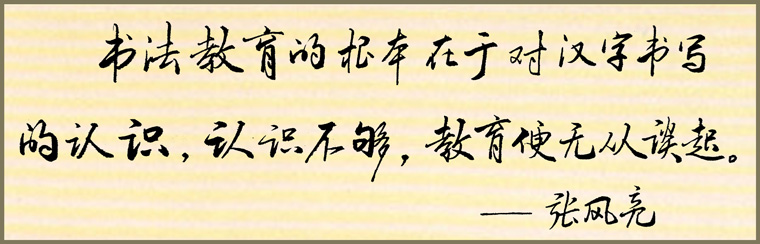 书法教育的根本在于对汉字书写
的认识，认识不够，教育便无从谈起。
——张风亮